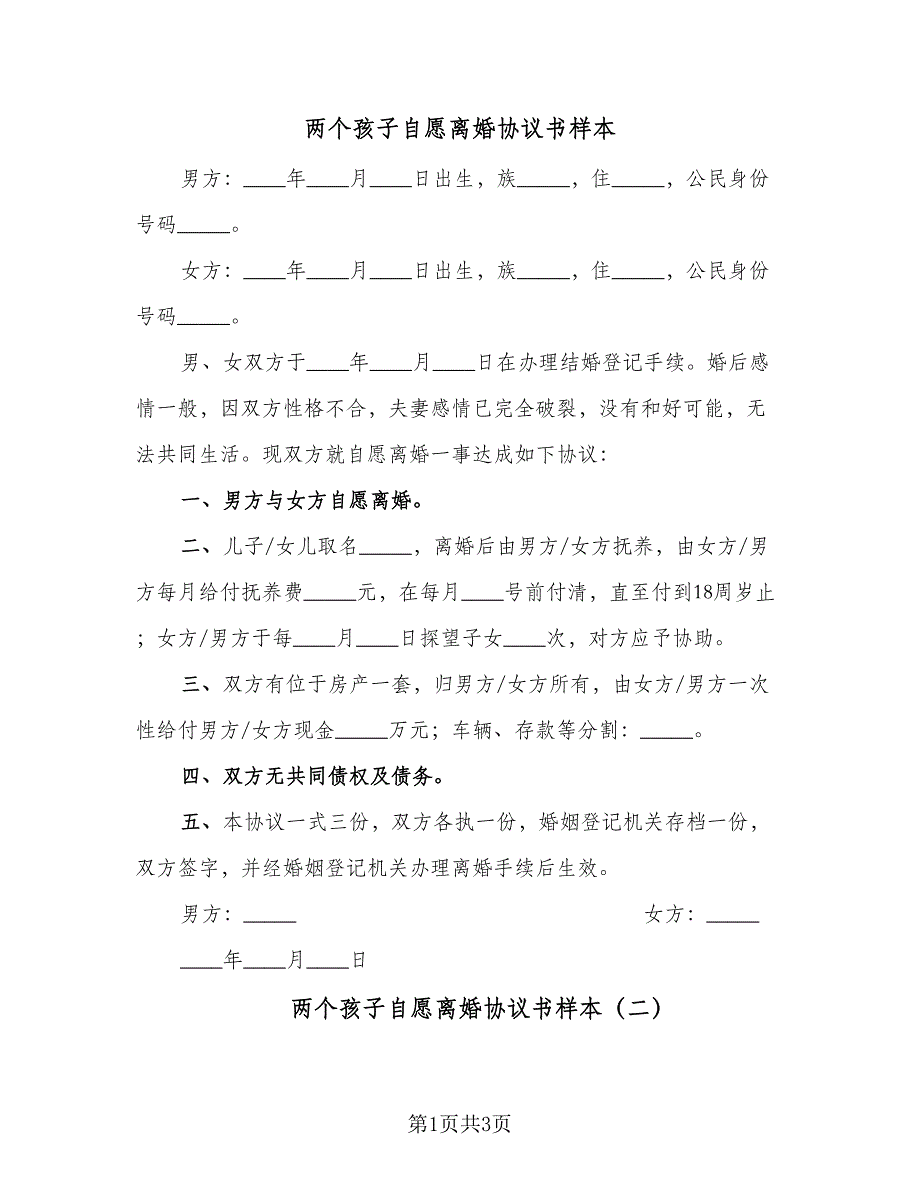 两个孩子自愿离婚协议书样本
男方：____年____月____日出生，族_____，住_____，公民身份
号码_____。
女方：____年____月____日出生，族_____，住_____，公民身份
号码_____。
男、女双方于____年____月____日在办理结婚登记手续。婚后感
情一般，因双方性格不合，夫妻感情已完全破裂，没有和好可能，无
法共同生活。现双方就自愿离婚一事达成如下协议：
一、男方与女方自愿离婚。
二、儿子/女儿取名_____，离婚后由男方/女方抚养，由女方/男
方每月给付抚养费_____元，在每月____号前付清，直至付到18周岁止
；女方/男方于每____月____日探望子女____次，对方应予协助。
三、双方有位于房产一套，归男方/女方所有，由女方/男方一次
性给付男方/女方现金_____万元；车辆、存款等分割：_____。
四、双方无共同债权及债务。
五、本协议一式三份，双方各执一份，婚姻登记机关存档一份，
双方签字，并经婚姻登记机关办理离婚手续后生效。
男方：_____ 女方：_____
____年____月____日
两个孩子自愿离婚协议书样本（二）
第1页共3页